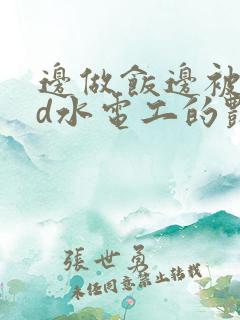 邊做飯邊被
d水電工的
張世勇
未經同意禁止轉載